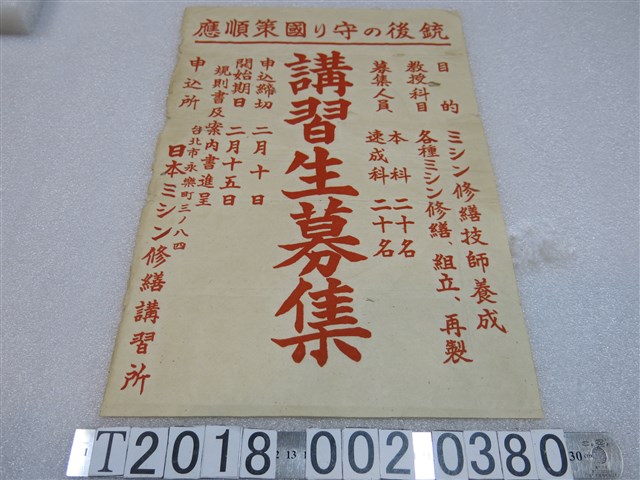 銃後の守り國策順應
目的 ミシン修繕技師養成
教授科目 各種ミシン修繕、組立、再製
募集人員 本科 二十名
速成科 二十名
講習生募集
申込締切 二月十日
開始期日 二月十五日
規則書及案内書進呈
申込所 台北市永樂町三ノ八四
日本ミシン修繕講習所
T2018 002 0380